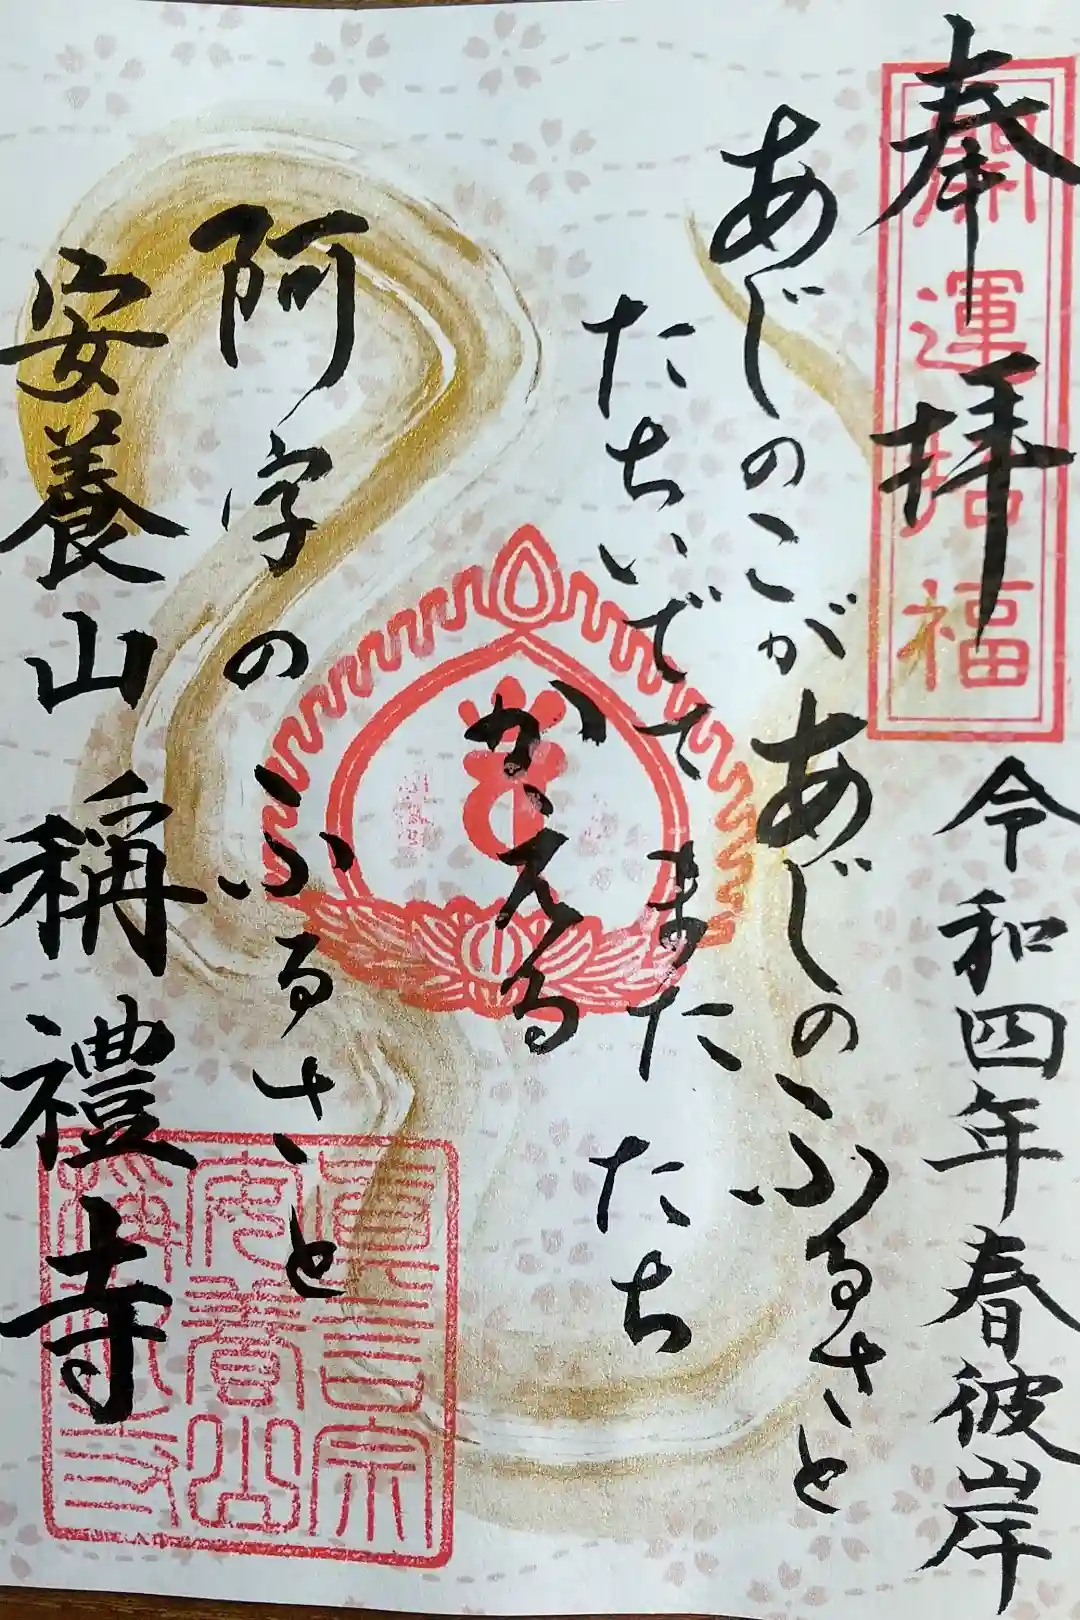 奉拝
開運招福
令和四年春彼岸
あじのこがあじのふるさと
たちいでてまたたち
かえる
阿字のふるさと
安養山稱禮寺
真言宗
安養山
稱禮寺